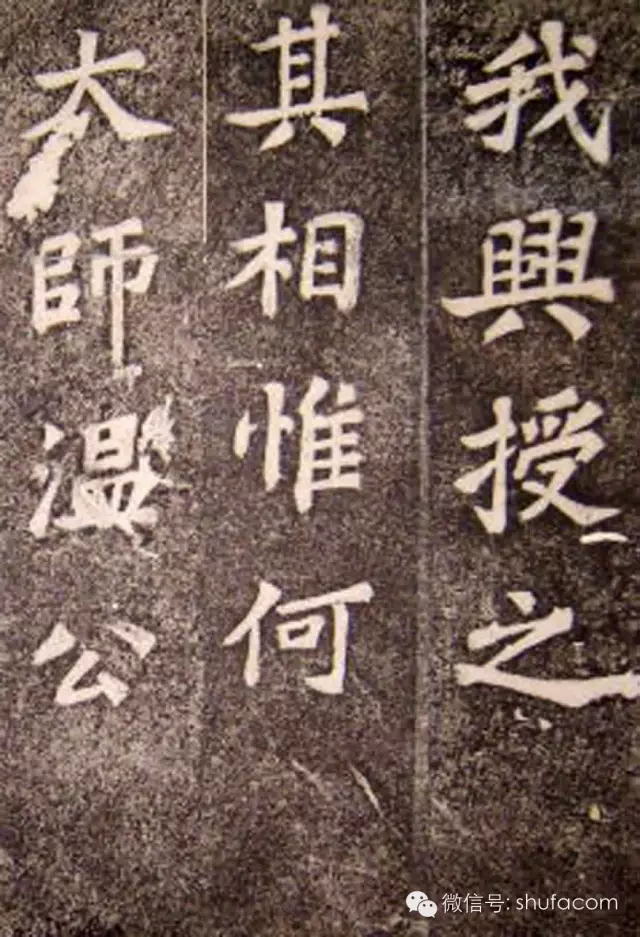 我興授之
其相惟何
太師溫公
微信号: shufacom